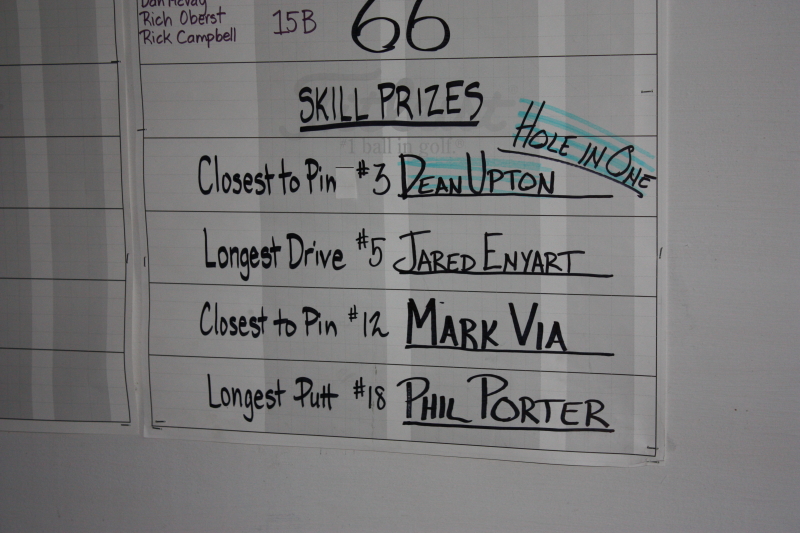 Dan McVay
Rich Oberst
Rick Campbell
15B
66
SKILL PRIZES
1 ball in golf.
HOLE IN ONE
Closest to Pin #3 DEAN UPTON
Longest Drive #5 JARED ENYART
Closest to Pin #12 MARK VIA
Longest Putt #18 PHIL PORTER